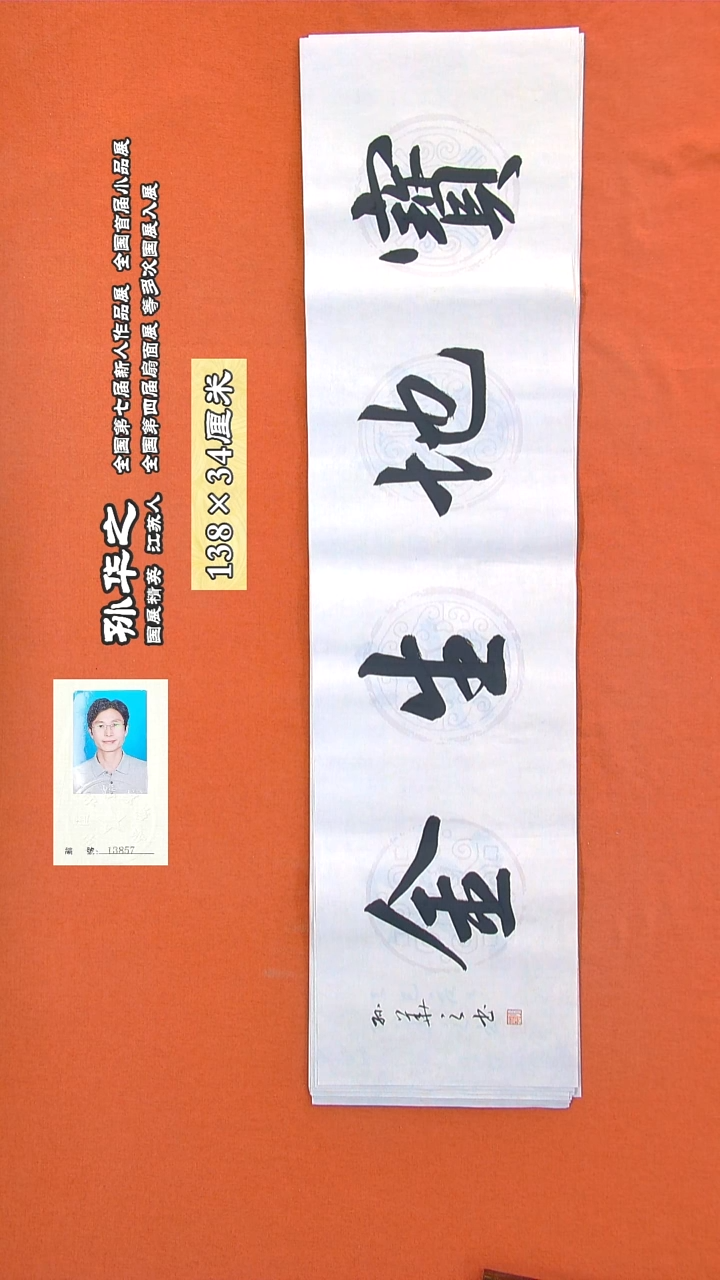 孙华之
国展精英 江苏人
全国第七届新人作品展 全国首届小品展
全国第四届扇面展 等多次国展入展
138×34厘米
編 號: 13857
寶地生金
孙華之书